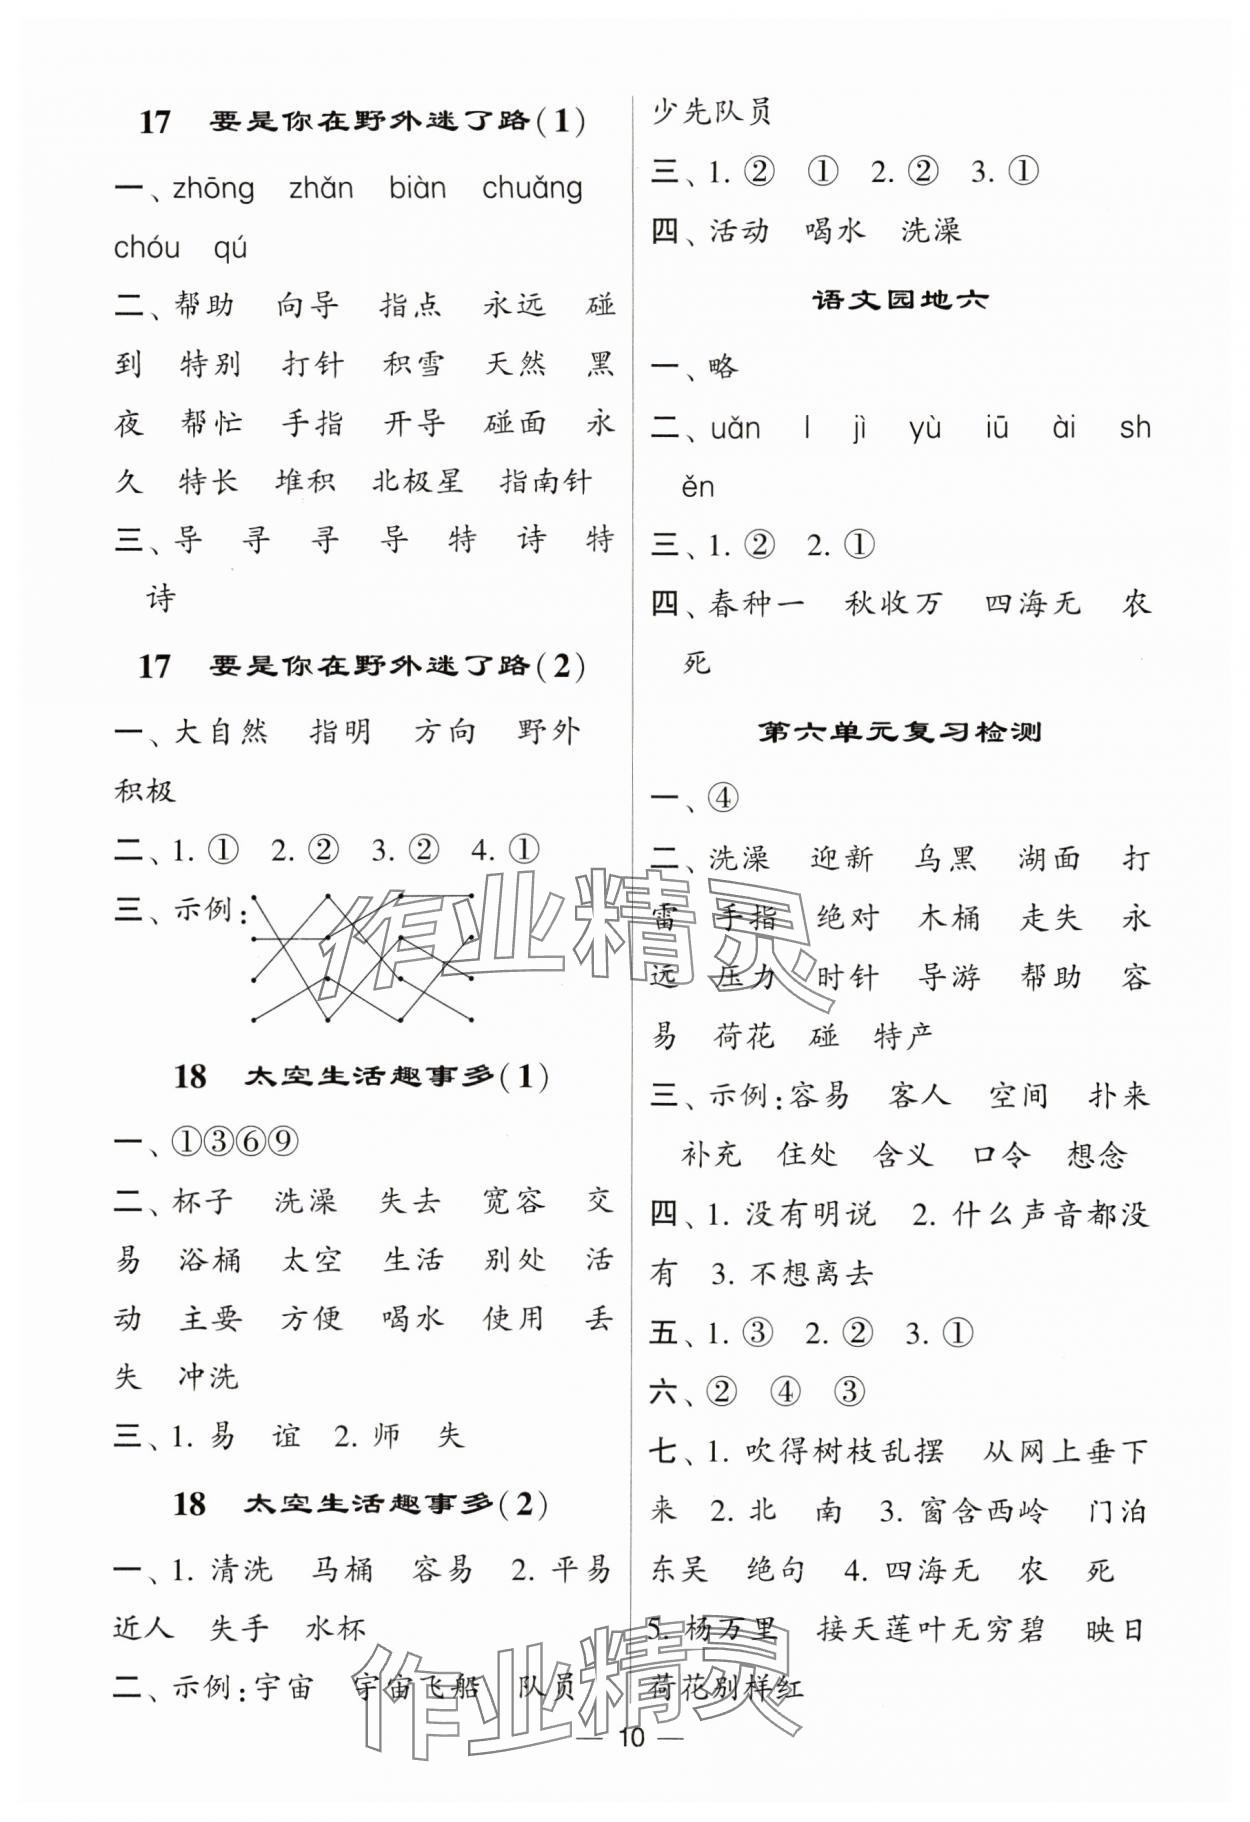 17 要是你在野外迷了路(1)
一、zhōng zhǎn biàn chuǎng
chóu qú
二、帮助 向导 指点 永远 碰
到 特别 打针 积雪 天然 黑
夜 帮忙 手指 开导 碰面 永
久 特长 堆积 北极星 指南针
三、导 寻 寻 导 特 诗 特
诗
17 要是你在野外迷了路(2)
一、大自然 指明 方向 野外
积极
二、1. ① 2. ② 3. ② 4. ①
三、示例:
18 太空生活趣事多(1)
一、①③⑥⑨
二、杯子 洗澡 失去 宽容 交
易 浴桶 太空 生活 别处 活
动 主要 方便 喝水 使用 丢
失 冲洗
三、1. 易 谊 2. 师 失
18 太空生活趣事多(2)
一、1. 清洗 马桶 容易 2. 平易
近人 失手 水杯
二、示例:宇宙 宇宙飞船 队员
少先队员
三、1. ② ① 2. ② 3. ①
四、活动 喝水 洗澡
语文园地六
一、略
二、uǎn l jì yù iū ài sh
ěn
三、1. ② 2. ①
四、春种一 秋收万 四海无 农
死
第六单元复习检测
一、④
二、洗澡 迎新 乌黑 湖面 打
雷 手指 绝对 木桶 走失 永
远 压力 时针 导游 帮助 容
易 荷花 碰 特产
三、示例:容易 客人 空间 扑来
补充 住处 含义 口令 想念
四、1. 没有明说 2. 什么声音都没
有 3. 不想离去
五、1. ③ 2. ② 3. ①
六、② ④ ③
七、1. 吹得树枝乱摆 从网上垂下
来 2. 北 南 3. 窗含西岭 门泊
东吴 绝句 4. 四海无 农 死
5. 杨万里 接天莲叶无穷碧 映日
荷花别样红
作业精灵
作业精灵
— 10 —